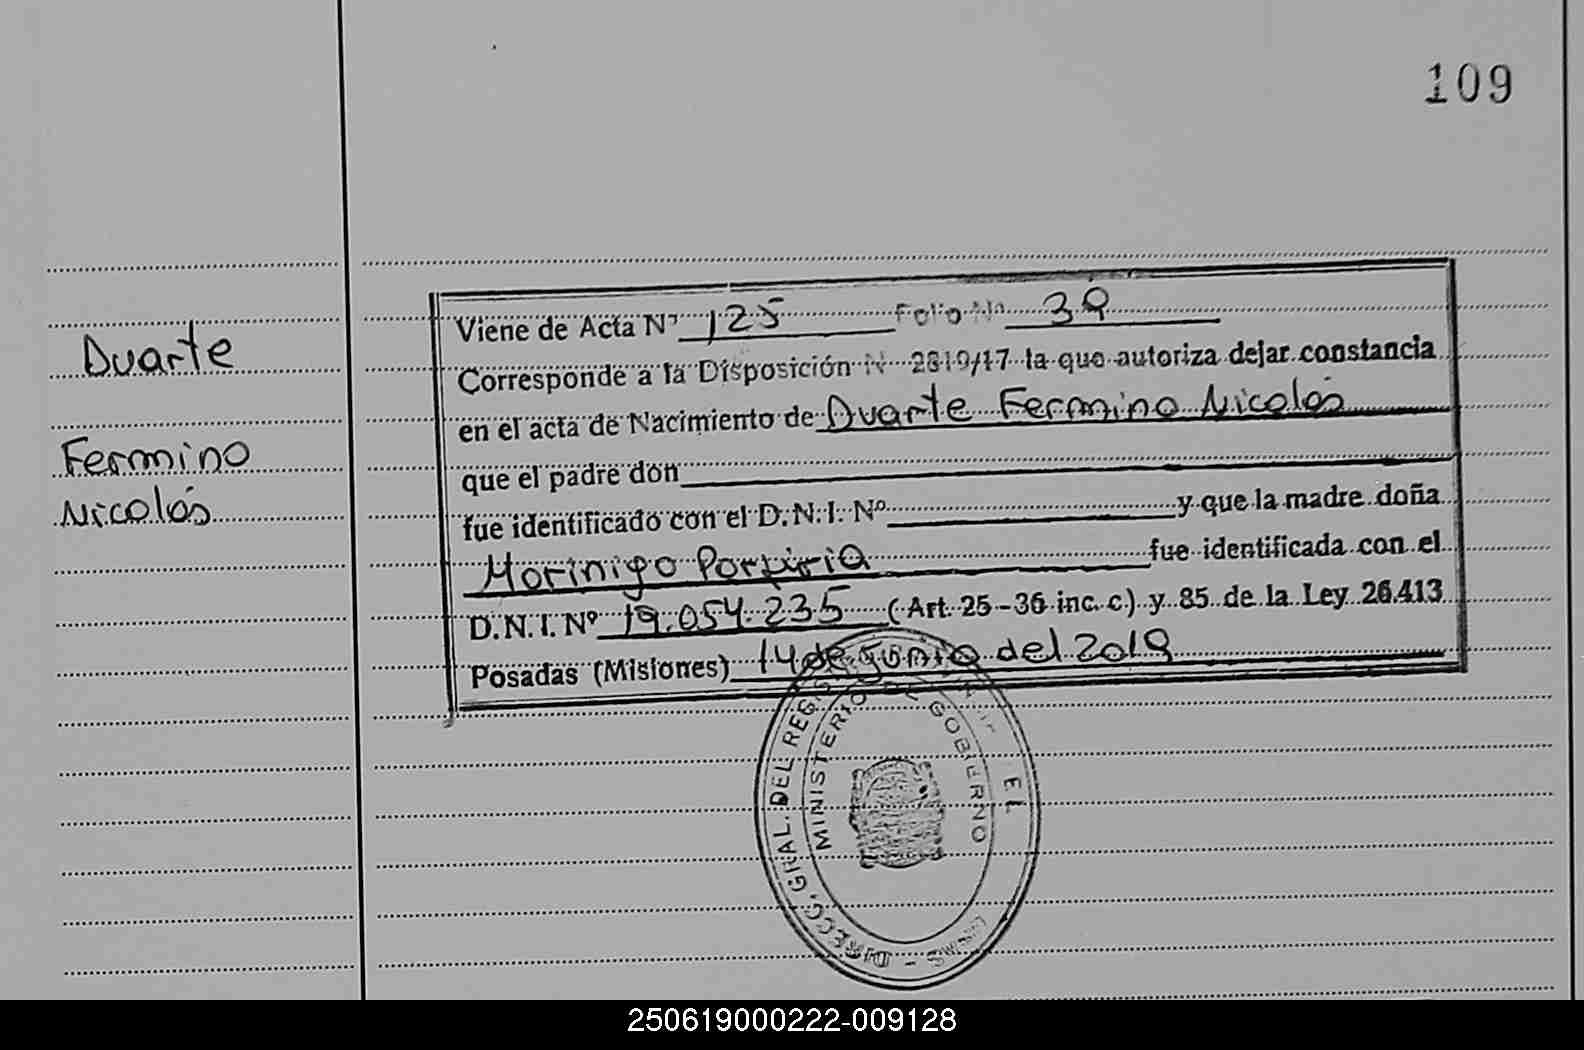 109
Duarte
Fermino
Nicolás
Viene de Acta Nº 125 Folio Nº 39
Corresponde a la Disposición Nº 2819/17 la que autoriza dejar constancia
en el acta de Nacimiento de Duarte Fermino Nicolás
que el padre don
fue identificado con el D.N.I. Nº y que la madre doña
Morinigo Porfiria fue identificada con el
D.N.I. Nº 19.054.235 (Art. 25-36 inc. c) y 85 de la Ley 26.413
Posadas (Misiones) 14 de Junio del 2019
DIRECC. GRAL. DEL REG
MINISTERIO DE GOBIERNO
250619000222-009128